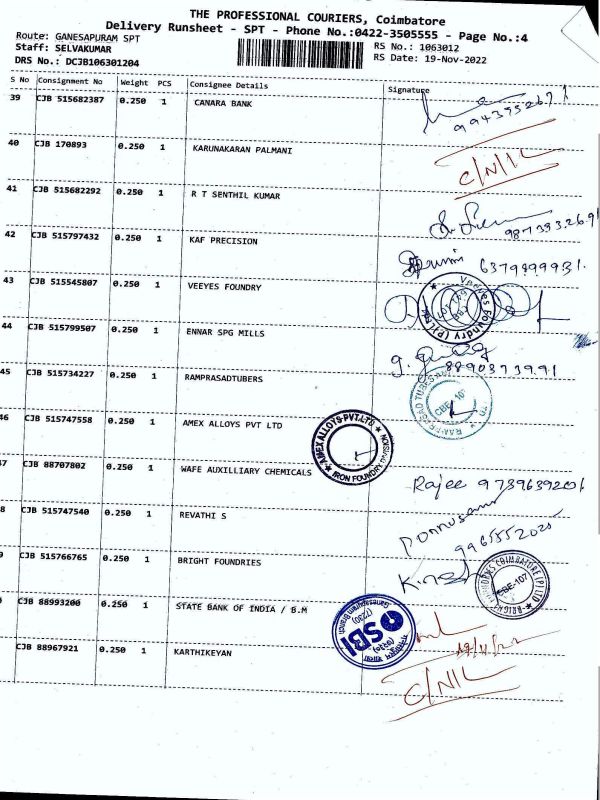 THE PROFESSIONAL COURIERS, Coimbatore
Delivery Runsheet - SPT - Phone No.:0422-3505555 - Page No.:4
Route: GANESAPURAM SPT
Staff: SELVAKUMAR
DRS No.: DCJB106301204
RS No.: 1063012
RS Date: 19-Nov-2022
S No Consignment No Weight PCS Consignee Details Signature
39 CJB 515682387 0.250 1 CANARA BANK
40 CJB 170893 0.250 1 KARUNAKARAN PALMANI C/N/L
41 CJB 515682292 0.250 1 R T SENTHIL KUMAR
42 CJB 515797432 0.250 1 KAF PRECISION
43 CJB 515545807 0.250 1 VEEYES FOUNDRY
44 CJB 515799507 0.250 1 ENNAR SPG MILLS
45 CJB 515734227 0.250 1 RAMPRASADTUBERS
46 CJB 515747558 0.250 1 AMEX ALLOYS PVT LTD
AMEX ALLOYS PVT.LTD
IRON FOUNDRY DIVISION
7 CJB 88707802 0.250 1 WAFE AUXILLIARY CHEMICALS Rajee
8 CJB 515747540 0.250 1 REVATHI S Ponnusamy
9965552020
9 CJB 515766765 0.250 1 BRIGHT FOUNDRIES
CBE-107
CJB 88993200 0.250 1 STATE BANK OF INDIA / B.M
SBI
19/11/22
CJB 88967921 0.250 1 KARTHIKEYAN C/N/L